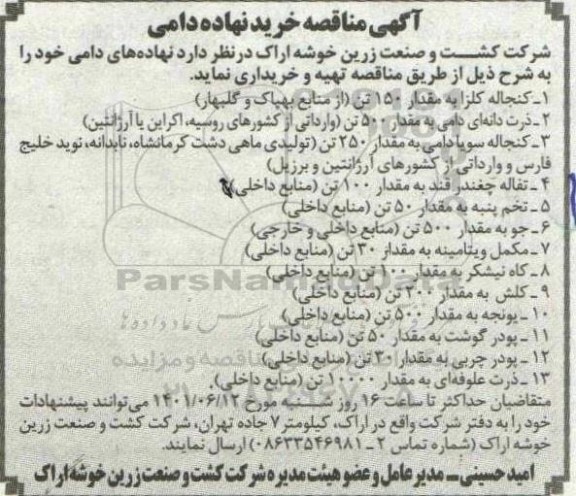 آگهی مناقصه خرید نهاده دامی
شرکت کشت و صنعت زرین خوشه اراک در نظر دارد نهاده‌های دامی خود را
به شرح ذیل از طریق مناقصه تهیه و خریداری نماید.
۱ـ کنجاله کلزا به مقدار ۱۵۰ تن (از منابع بهپاک و گلبهار)
۲ـ ذرت دانه‌ای دامی به مقدار ۵۰۰ تن (وارداتی از کشورهای روسیه، اکراین یا آرژانتین)
۳ـ کنجاله سویا دامی به مقدار ۲۵۰ تن (تولیدی ماهی دشت کرمانشاه، نابدانه، نوید خلیج
فارس و وارداتی از کشورهای آرژانتین و برزیل)
۴ـ تفاله چغندر قند به مقدار ۱۰۰ تن (منابع داخلی)
۵ـ تخم پنبه به مقدار ۵۰ تن (منابع داخلی)
۶ـ جو به مقدار ۵۰۰ تن (منابع داخلی و خارجی)
۷ـ مکمل ویتامینه به مقدار ۳۰ تن (منابع داخلی)
۸ـ کاه نیشکر به مقدار ۱۰۰ تن (منابع داخلی)
۹ـ کلش به مقدار ۲۰۰ تن (منابع داخلی)
۱۰ـ یونجه به مقدار ۵۰۰ تن (منابع داخلی)
۱۱ـ پودر گوشت به مقدار ۵۰ تن (منابع داخلی)
۱۲ـ پودر چربی به مقدار ۳۰ تن (منابع داخلی)
۱۳ـ ذرت علوفه‌ای به مقدار ۱۰۰۰۰ تن (منابع داخلی).
متقاضیان حداکثر تا ساعت ۱۶ روز شنبه مورخ ۱۴۰۱/۰۶/۱۲ می‌توانند پیشنهادات
خود را به دفتر شرکت واقع در اراک، کیلومتر ۷ جاده تهران، شرکت کشت و صنعت زرین
خوشه اراک (شماره تماس ۲ـ۰۸۶۳۳۵۴۶۹۸۱) ارسال نمایند.
امید حسینی ـ مدیر عامل و عضو هیئت مدیره شرکت کشت و صنعت زرین خوشه اراک
ParsNamadData